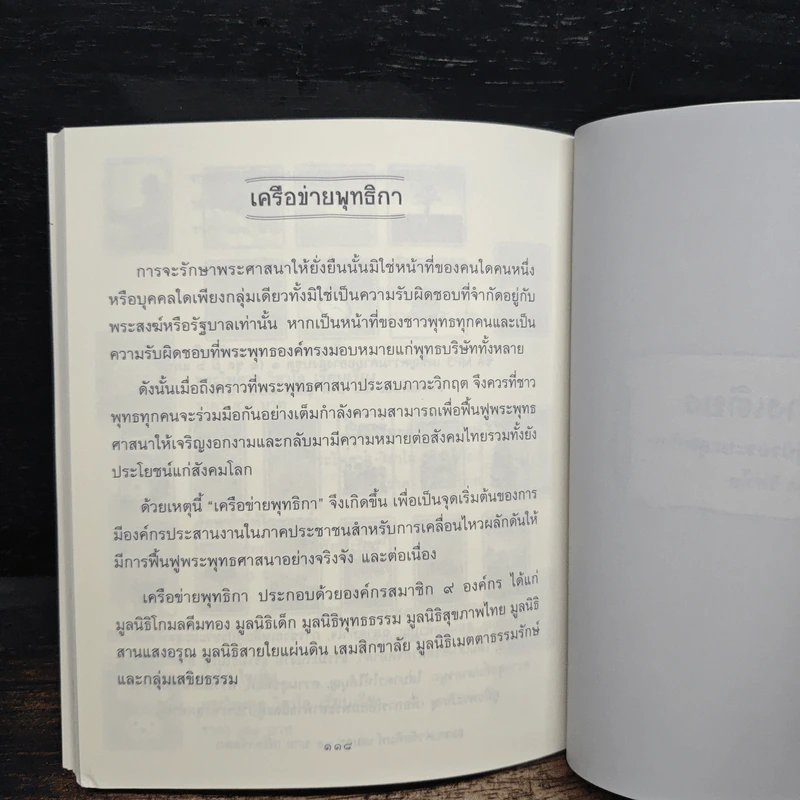 เครือข่ายพุทธิกา
การจะรักษาพระศาสนาให้ยั่งยืนนั้นมิใช่หน้าที่ของคนใดคนหนึ่ง
หรือบุคคลใดเพียงกลุ่มเดียวทั้งมิใช่เป็นความรับผิดชอบที่จำกัดอยู่กับ
พระสงฆ์หรือรัฐบาลเท่านั้น หากเป็นหน้าที่ของชาวพุทธทุกคนและเป็น
ความรับผิดชอบที่พระพุทธองค์ทรงมอบหมายแก่พุทธบริษัททั้งหลาย
ดังนั้นเมื่อถึงคราวที่พระพุทธศาสนาประสบภาวะวิกฤต จึงควรที่ชาว
พุทธทุกคนจะร่วมมือกันอย่างเต็มกำลังความสามารถเพื่อฟื้นฟูพระพุทธ
ศาสนาให้เจริญงอกงามและกลับมามีความหมายต่อสังคมไทยรวมทั้งยัง
ประโยชน์แก่สังคมโลก
ด้วยเหตุนี้ “เครือข่ายพุทธิกา” จึงเกิดขึ้น เพื่อเป็นจุดเริ่มต้นของการ
มีองค์กรประสานงานในภาคประชาชนสำหรับการเคลื่อนไหวผลักดันให้
มีการฟื้นฟูพระพุทธศาสนาอย่างจริงจัง และต่อเนื่อง
เครือข่ายพุทธิกา ประกอบด้วยองค์กรสมาชิก ๙ องค์กร ได้แก่
มูลนิธิโกมลคีมทอง มูลนิธิเด็ก มูลนิธิพุทธธรรม มูลนิธิสุขภาพไทย มูลนิธิ
สานแสงอรุณ มูลนิธิสายใยแผ่นดิน เสมสิกขาลัย มูลนิธิเมตตาธรรมรักษ์
และกลุ่มเสขิยธรรม
๑๑๘